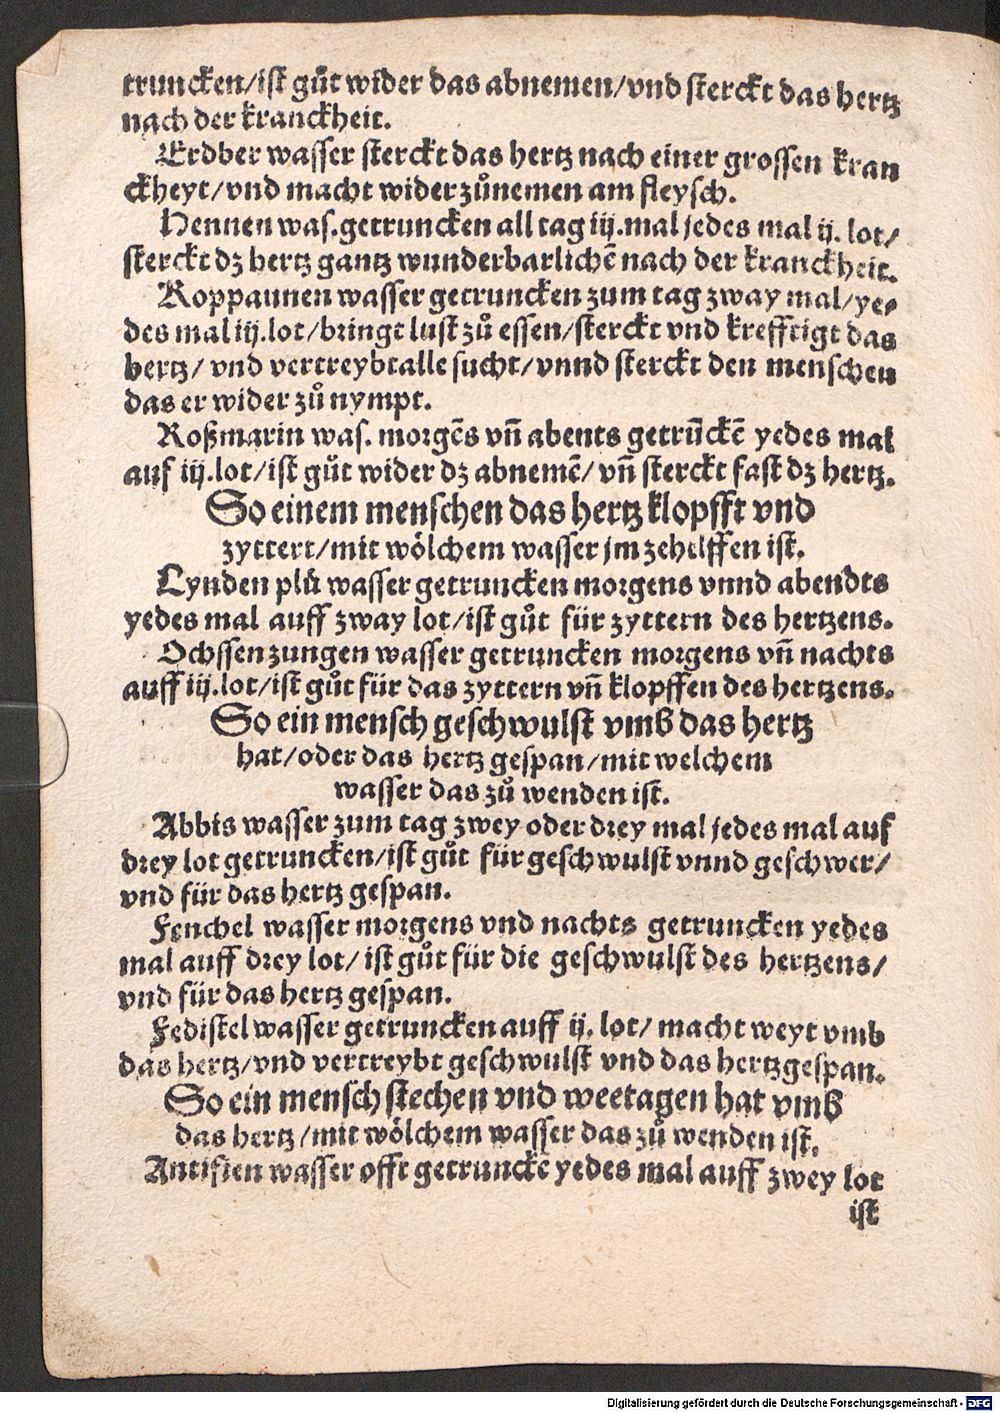 truncken/iſt gůt wider das abnemen/vnd ſterckt das hertz
nach der kranckheit.
Erdber waſſer ſterckt das hertz nach einer groſſen kran
ckheyt/vnd macht wider zůnemen am fleyſch.
Hennen waſ.getruncken all tag iij.mal jedes mal ij. lot/
ſterckt dz hertz gantz wunderbarlichē nach der kranckheit.
Koppaunen waſſer getruncken zum tag zway mal/ye⸗
des mal iij.lot/bringt luſt zů eſſen/ſterckt vnd krefftigt das
hertz/ vnd vertreybt alle ſucht/vnnd ſterckt den menſchen
das er wider zů nympt.
Roßmarin waſ. morgēs vn̄ abents getrūckē yedes mal
auf iij.lot/iſt gůt wider dz abnemē/ vn̄ ſterckt faſt dz hertz.
So einem menſchen das hertz klopfft vnd
zyttert/mit wölchem waſſer jm zehelffen iſt.
Lynden plů waſſer getruncken morgens vnnd abendts
yedes mal auff zway lot/iſt gůt für zyttern des hertzens.
Ochſſenzungen waſſer getruncken morgens vn̄ nachts
auff iij.lot/iſt gůt für das zyttern vn̄ klopffen des hertzens.
So ein menſch geſchwulſt vmb das hertz
hat/oder das hertz geſpan/mit welchem
waſſer das zů wenden iſt.
Abbis waſſer zum tag zwey oder drey mal jedes mal auf
drey lot getruncken/iſt gůt für geſchwulſt vnnd geſchwer/
vnd für das hertz geſpan.
Fenchel waſſer morgens vnd nachts getruncken yedes
mal auff drey lot/ iſt gůt für die geſchwulſt des hertzens/
vnd für das hertz geſpan.
Fediſtel waſſer getruncken auff ij. lot/ macht weyt vmb
das hertz/vnd vertreybt geſchwulſt vnd das hertzgeſpan.
So ein menſch ſtechen vnd weetagen hat vmb
das hertz/mit wölchem waſſer das zů wenden iſt.
Antifien waſſer offt getrunckē yedes mal auff zwey lot
iſt
Digitalisierung gefördert durch die Deutsche Forschungsgemeinschaft - DFG